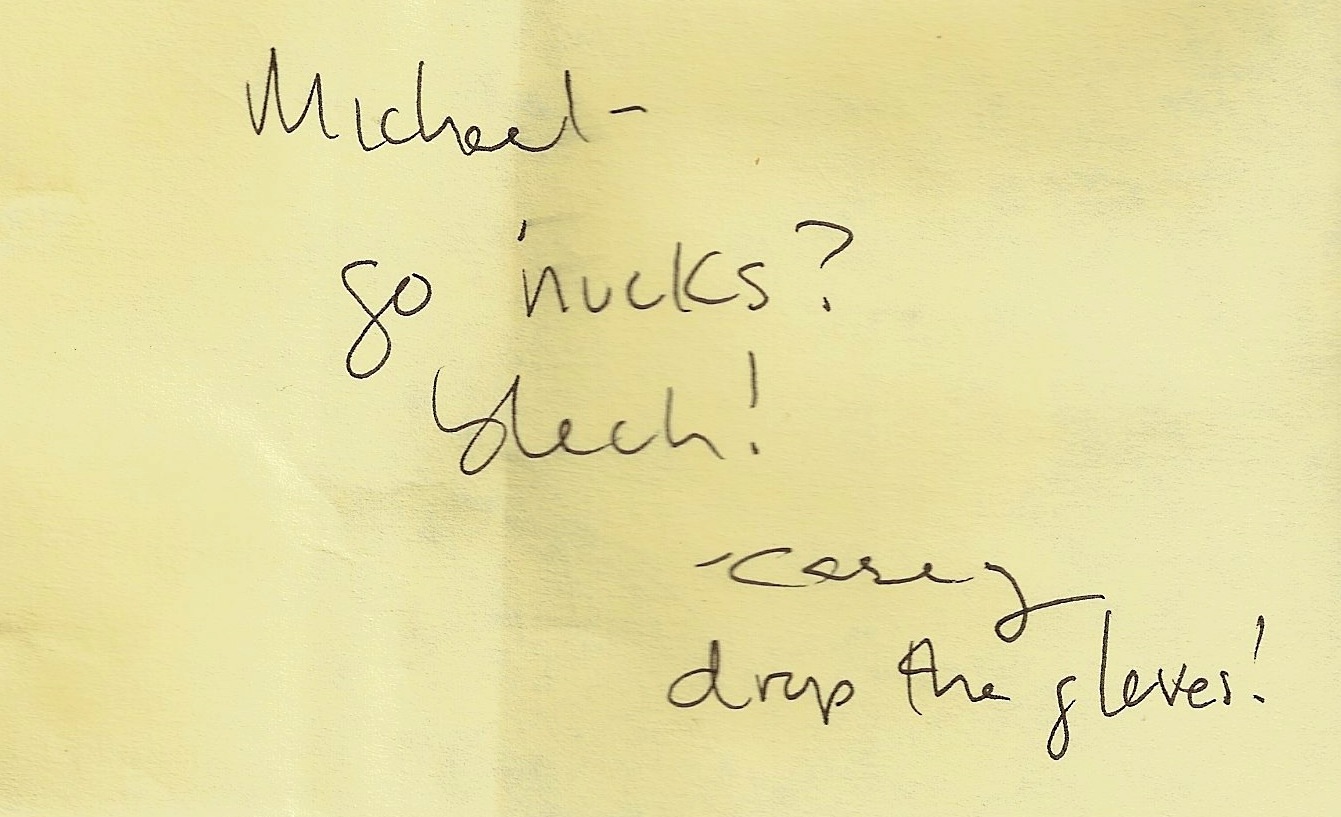 Michael -
go 'nucks?
blech!
- casey
drop the gloves!